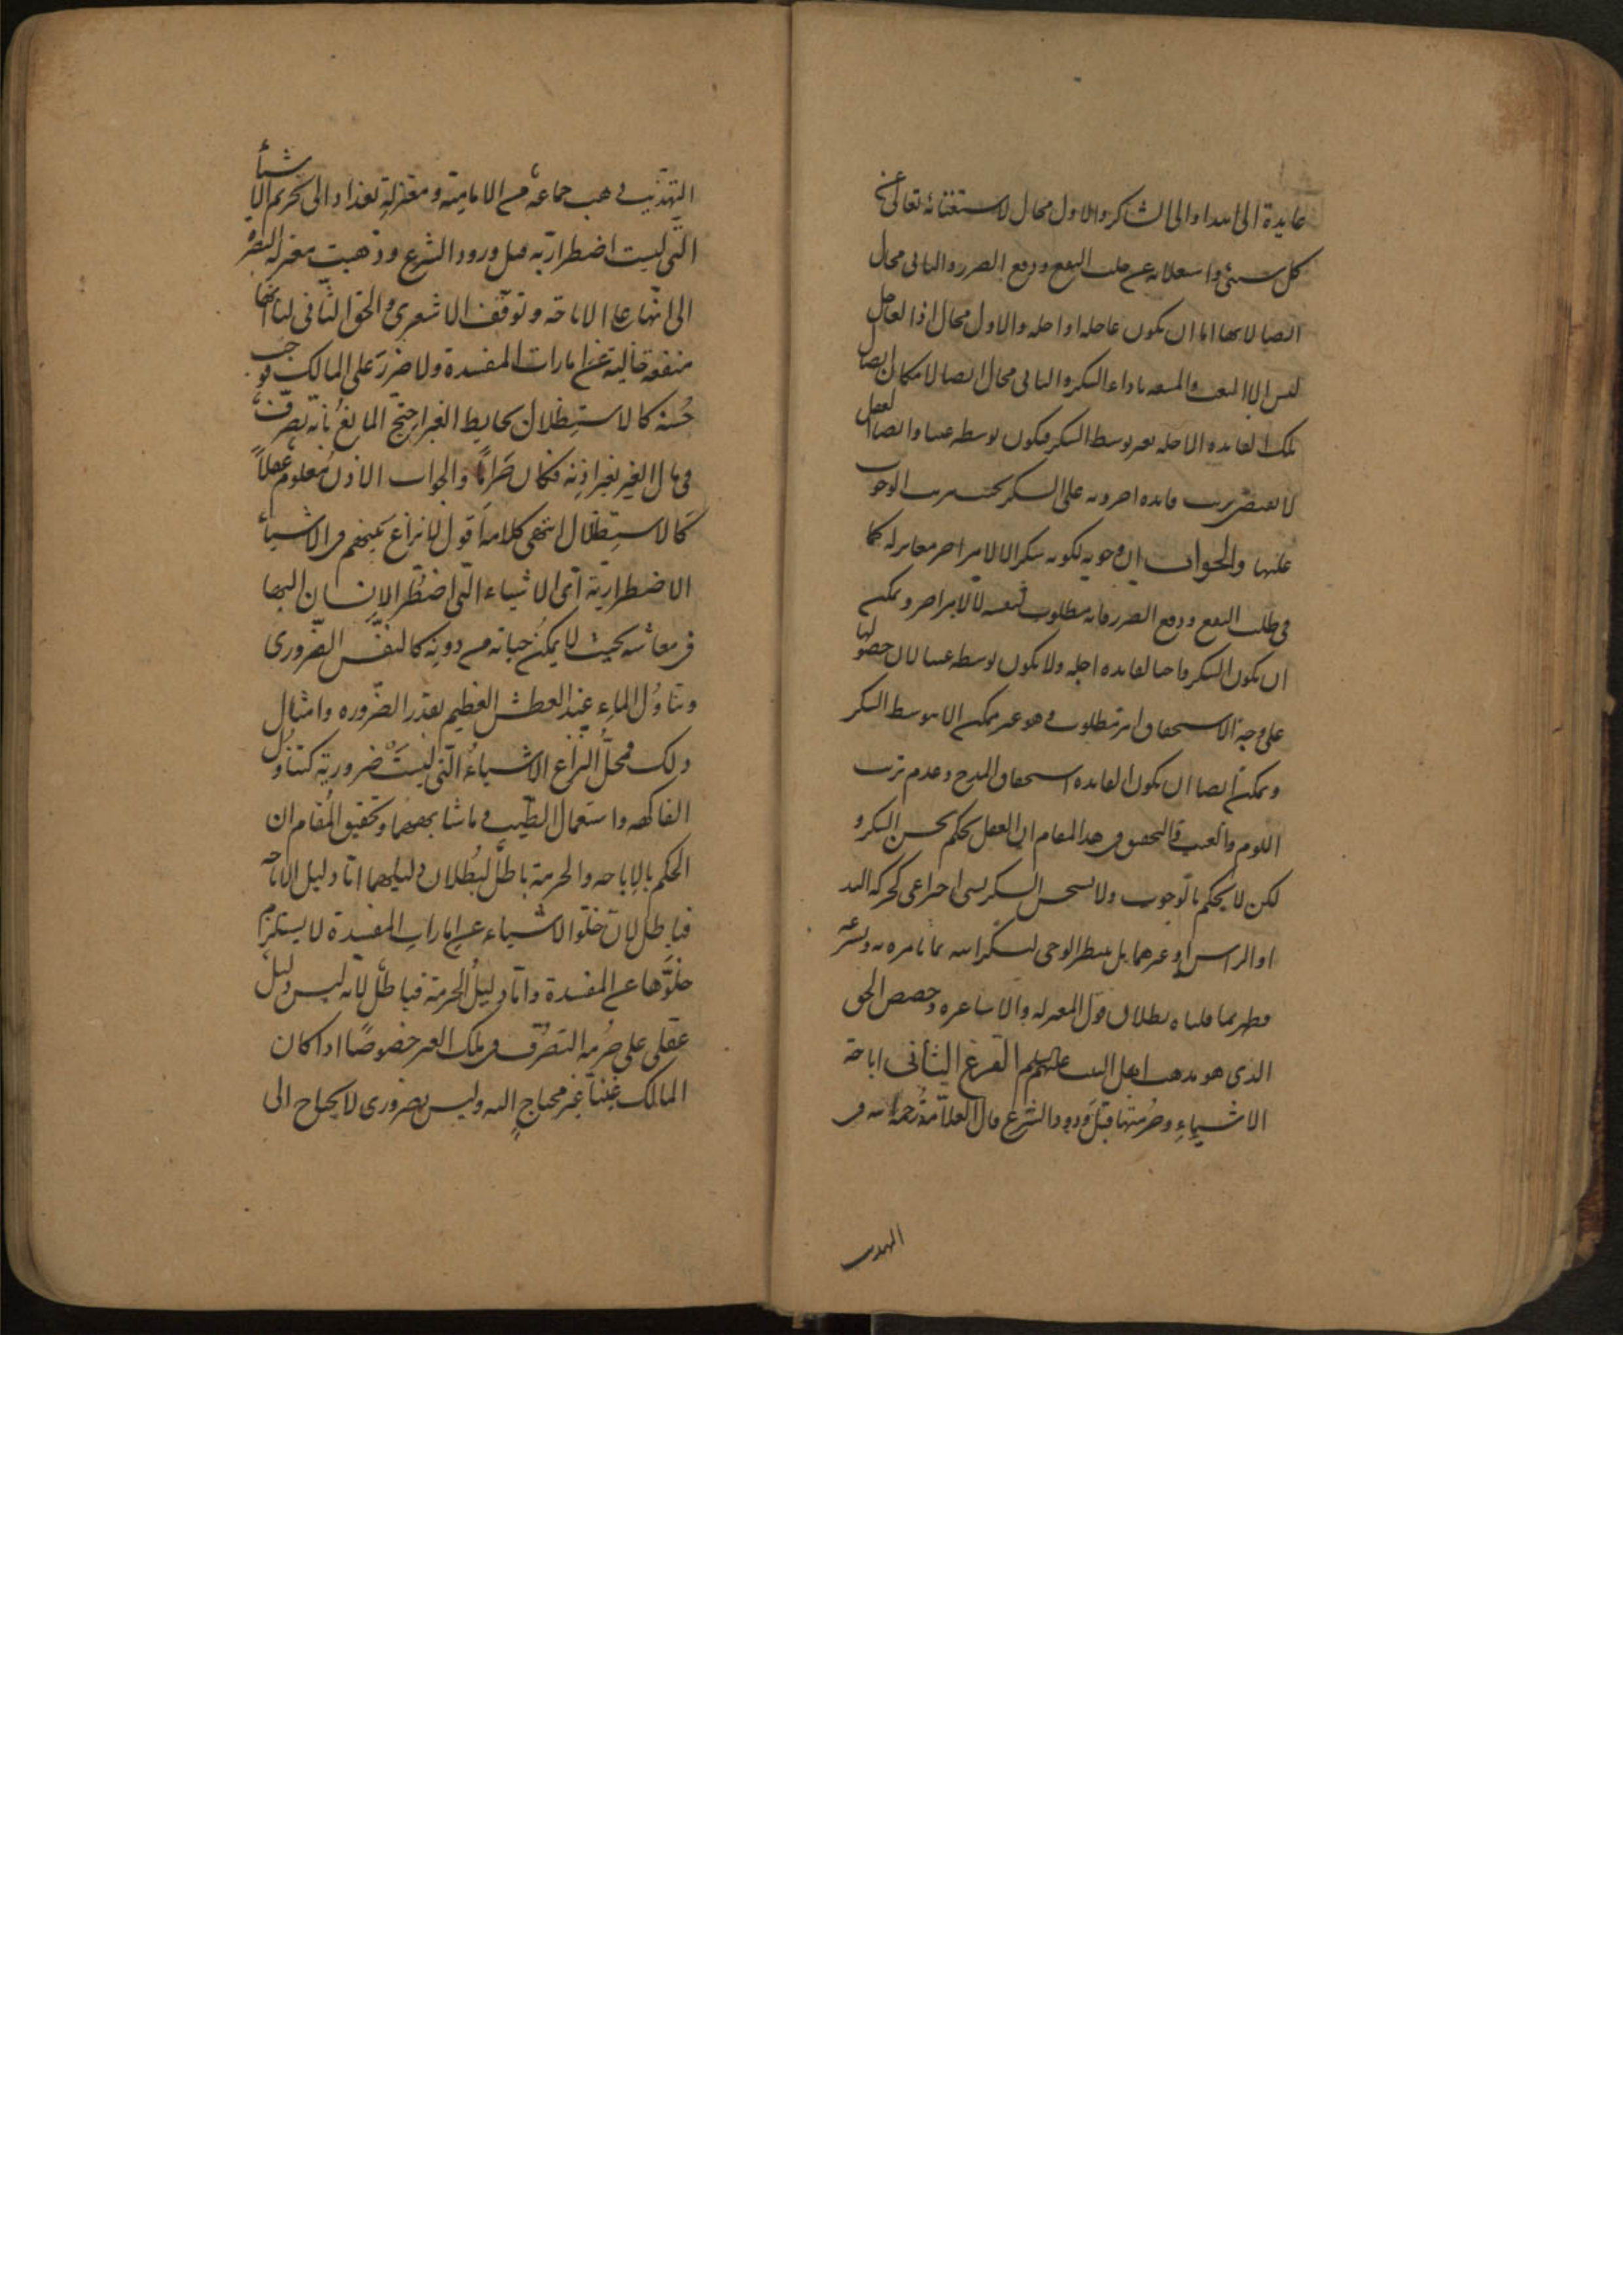 عايدة الى الله او الى الشاكر والاول محال لاستغنائه تعالى عن
كل شيء واستعلائه عن جلب النفع ودفع الضرر والثاني محال
ايضا لانها اما ان يكون عاجله او اجله والاول محال اذ العاجل
ليس الا التعب والمشقه باداء الشكر والثاني محال ايضا لامكان ايصال
تلك الفايده الاجله بغير توسط الشكر فيكون توسطه عبثا وايضا العقل
لا يقتضى ترتب فايده اخرويه على الشكر بحيث ترتب الوجوب
عليها والجواب ان وجوبه لكونه شكرا لا لامر اخر مغاير له كما
في طلب النفع ودفع الضرر فانه مطلوب لنفسه لا لامر اخر ويمكن
ان يكون الشكر واجبا لفايده اجله ولا يكون توسطه عبثا لان حصولها
على وجه الاستحقاق امر مطلوب وهو غير ممكن الا بتوسط الشكر
ويمكن ايضا ان يكون الفايده استحقاق المدح وعدم ترتب
اللوم والعتب والتحقيق في هذا المقام ان العقل يحكم بحسن الشكر و
لكن لا يحكم بالوجوب ولا يستحسن الشكر بشيء اختراعي كحركة اليد
او الراس او غيرهما بل ينتظر الوحى ليشكر الله بما يامره به ويشرعه
فظهر بما قلناه بطلان قول المعتزله والاشاعره وحصص الحق
الذى هو مذهب اهل البيت عليهم السلم الفرع الثاني اباحة
الاشياء وحرمتها قبل ورود الشرع قال العلامة رحمه الله في
التهذيب
التهذيب ذهب جماعة من الامامية ومعتزلة بغداد الى تحريم الاشيأ
التى ليست اضطرارية قبل ورود الشرع وذهبت معتزلة البصرة
الى انها على الاباحة وتوقف الاشعرى والحق الثانى لنا انها
منفعة خالية عن امارات المفسدة ولا ضرر على المالك فوجب
حسنه كالاستظلال بحايط الغير احتج المانع بأنه تصرف
في مال الغير بغير اذنه فكان حراما والجواب الاذن معلوم عقلاً
كالاستظلال انتهى كلامه اقول لا نزاع بينهم فى الاشيأ
الاضطرارية اى الاشياء التى اضطر الانسان اليها
فى معاشه بحيث لا يمكن حياته من دونه كالنفس الضرورى
وتناول الماء عند العطش العظيم بقدر الضروره وامثال
ذلك فمحل النزاع الاشياء التى ليست ضرورية كتناول
الفاكهه واستعمال الطيب وما شابههما وتحقيق المقام ان
الحكم بالاباحه والحرمة باطل لبطلان دليلهما اما دليل الاباحه
فباطل لان خلو الاشياء عن امارات المفسدة لا يستلزم
خلوها عن المفسدة واما دليل الحرمة فباطل لانه ليس دليل
عقلى على حرمة التصرف فى ملك الغير خصوصًا اذا كان
المالك غنياً غير محتاج اليه وليس بضرورى لا يحتاج الى